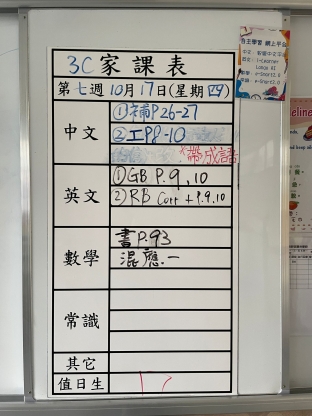 3C 家課表
第七週 10月17日(星期四)
中文 ①補P26-27
②工P8-10
*帶成語
英文 ①GB P.9,10
②RB Corr + P.9,10
數學 書P.93
混應.一
常識
其它
值日生
自主學習 網上平台